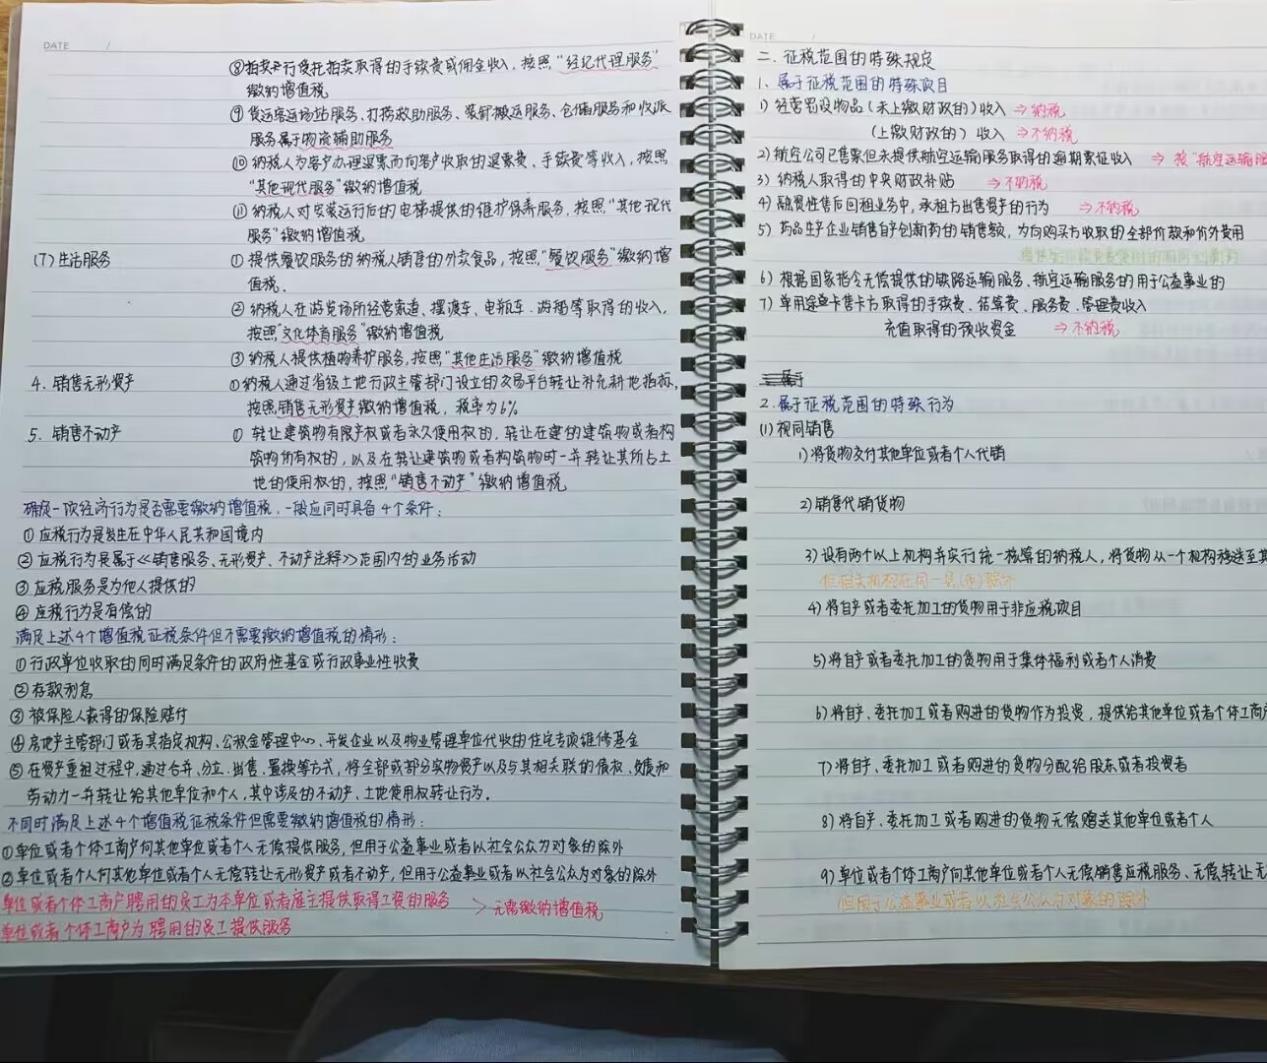 DATE /
⑧拍卖行受托拍卖取得的手续费或佣金收入,按照"经纪代理服务"
缴纳增值税
⑨货运客运场站服务、打捞救助服务、装卸搬运服务、仓储服务和收派
服务属于物流辅助服务
⑩纳税人为客户办理退票而向客户收取的退票费、手续费等收入,按照
"其他现代服务"缴纳增值税
⑪纳税人对安装运行后的电梯提供的维护保养服务,按照"其他现代
服务"缴纳增值税
(7)生活服务 ①提供餐饮服务的纳税人销售的外卖食品,按照"餐饮服务"缴纳增
值税.
②纳税人在游览场所经营索道、摆渡车、电瓶车、游船等取得的收入,
按照"文化体育服务"缴纳增值税
③纳税人提供植物养护服务,按照"其他生活服务"缴纳增值税
4. 销售无形资产 ①纳税人通过省级土地行政主管部门设立的交易平台转让补充耕地指标,
按照销售无形资产缴纳增值税,税率为6%
5. 销售不动产 ①转让建筑物有限产权或者永久使用权的,转让在建的建筑物或者构
筑物所有权的,以及在转让建筑物或者构筑物时一并转让其所占土
地的使用权的,按照"销售不动产"缴纳增值税
确定一次经济行为是否需要缴纳增值税,一般应同时具备4个条件:
①应税行为是发生在中华人民共和国境内
②应税行为是属于《销售服务、无形资产、不动产注释》范围内的业务活动
③应税服务是为他人提供的
④应税行为是有偿的
满足上述4个增值税征税条件但不需要缴纳增值税的情形:
①行政单位收取的同时满足条件的政府性基金或行政事业性收费
②存款利息
③被保险人获得的保险赔付
④房地产主管部门或者其指定机构、公积金管理中心、开发企业以及物业管理单位代收的住宅专项维修基金
⑤在资产重组过程中,通过合并、分立、出售、置换等方式,将全部或部分实物资产以及与其相关联的债权、负债和
劳动力一并转让给其他单位和个人,其中涉及的不动产、土地使用权转让行为.
不同时满足上述4个增值税征税条件但需要缴纳增值税的情形:
①单位或者个体工商户向其他单位或者个人无偿提供服务,但用于公益事业或者以社会公众为对象的除外
②单位或者个人向其他单位或者个人无偿转让无形资产或者不动产,但用于公益事业或者以社会公众为对象的除外
单位或者个体工商户聘用的员工为本单位或者雇主提供取得工资的服务 > 无需缴纳增值税
单位或者个体工商户为聘用的员工提供服务
DATE /
二. 征税范围的特殊规定
1. 属于征税范围的特殊项目
1) 经营罚没物品(未上缴财政的)收入 ⇒纳税
(上缴财政的)收入 ⇒不纳税
2)航空公司已售票但未提供航空运输服务取得的逾期票证收入 ⇒ 按"航空运输服
3) 纳税人取得的中央财政补贴 ⇒不纳税
4) 融资性售后回租业务中,承租方出售资产的行为 ⇒不纳税
5) 药品生产企业销售自产创新药的销售额,为向购买方收取的全部价款和价外费用
6) 根据国家指令无偿提供的铁路运输服务、航空运输服务的用于公益事业的
7) 单用途卡售卡方取得的手续费、结算费、服务费、管理费收入
充值取得的预收资金 ⇒不纳税
2. 属于征税范围的特殊行为
(1)视同销售
1)将货物交付其他单位或者个人代销
2)销售代销货物
3)设有两个以上机构并实行统一核算的纳税人,将货物从一个机构移送至其
但相关机构在同一县(市)除外
4)将自产或者委托加工的货物用于非应税项目
5)将自产或者委托加工的货物用于集体福利或者个人消费
6)将自产、委托加工或者购进的货物作为投资,提供给其他单位或者个体工商户
7)将自产、委托加工或者购进的货物分配给股东或者投资者
8)将自产、委托加工或者购进的货物无偿赠送其他单位或者个人
9)单位或者个体工商户向其他单位或者个人无偿销售应税服务、无偿转让无
但用于公益事业或者以社会公众为对象的除外